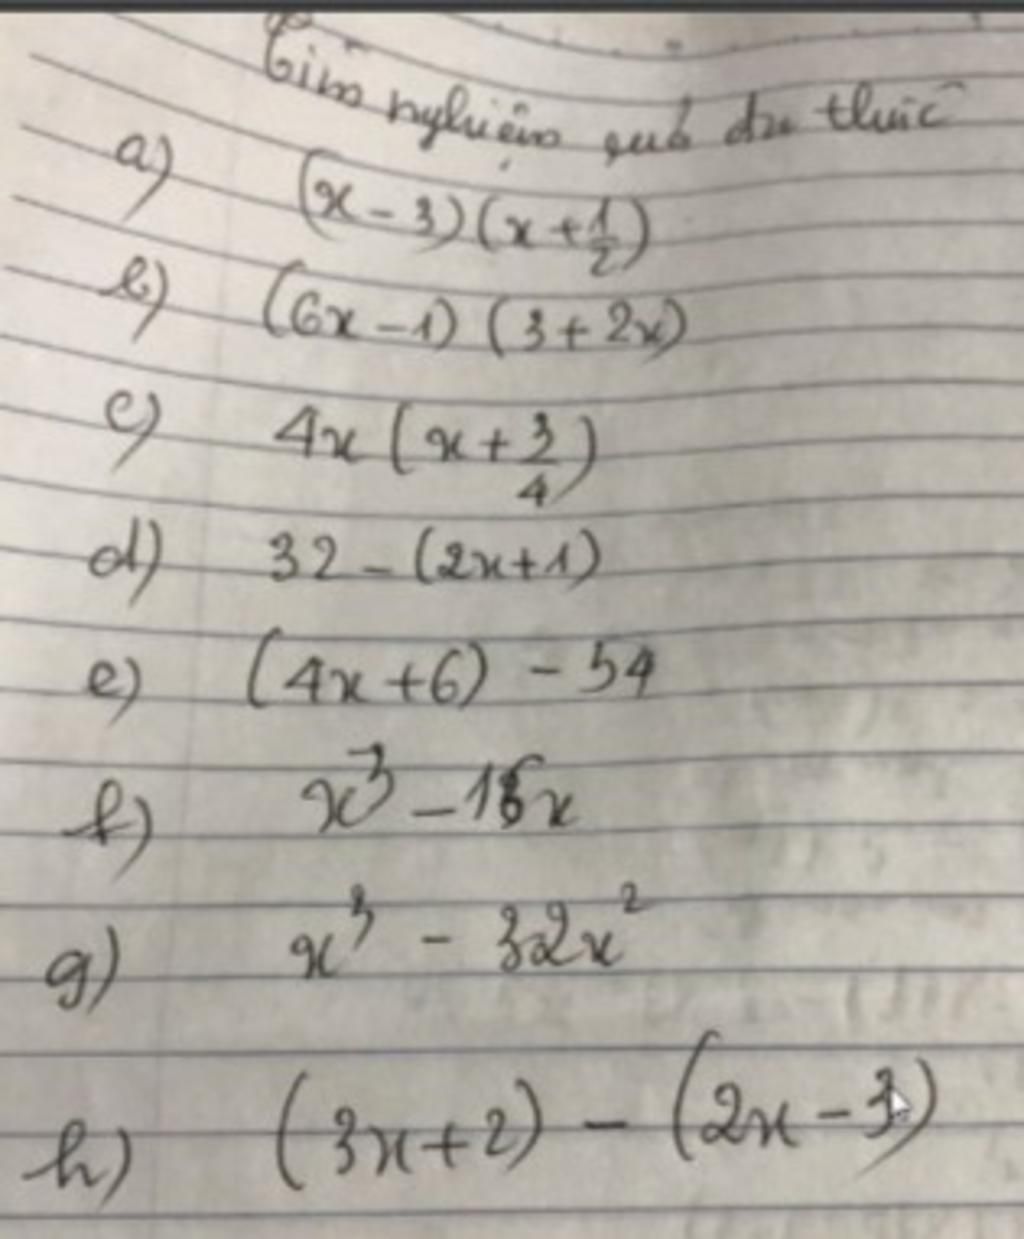 Tìm nghiệm quả đa thức
a) (x - 3)(x + 1/2)
b) (6x - 1) (3 + 2x)
c) 4x (x + 3/4)
d) 32 - (2x + 1)
e) (4x + 6) - 54
f) x³ - 16x
g) x³ - 32x²
h) (3x + 2) - (2x - 3)